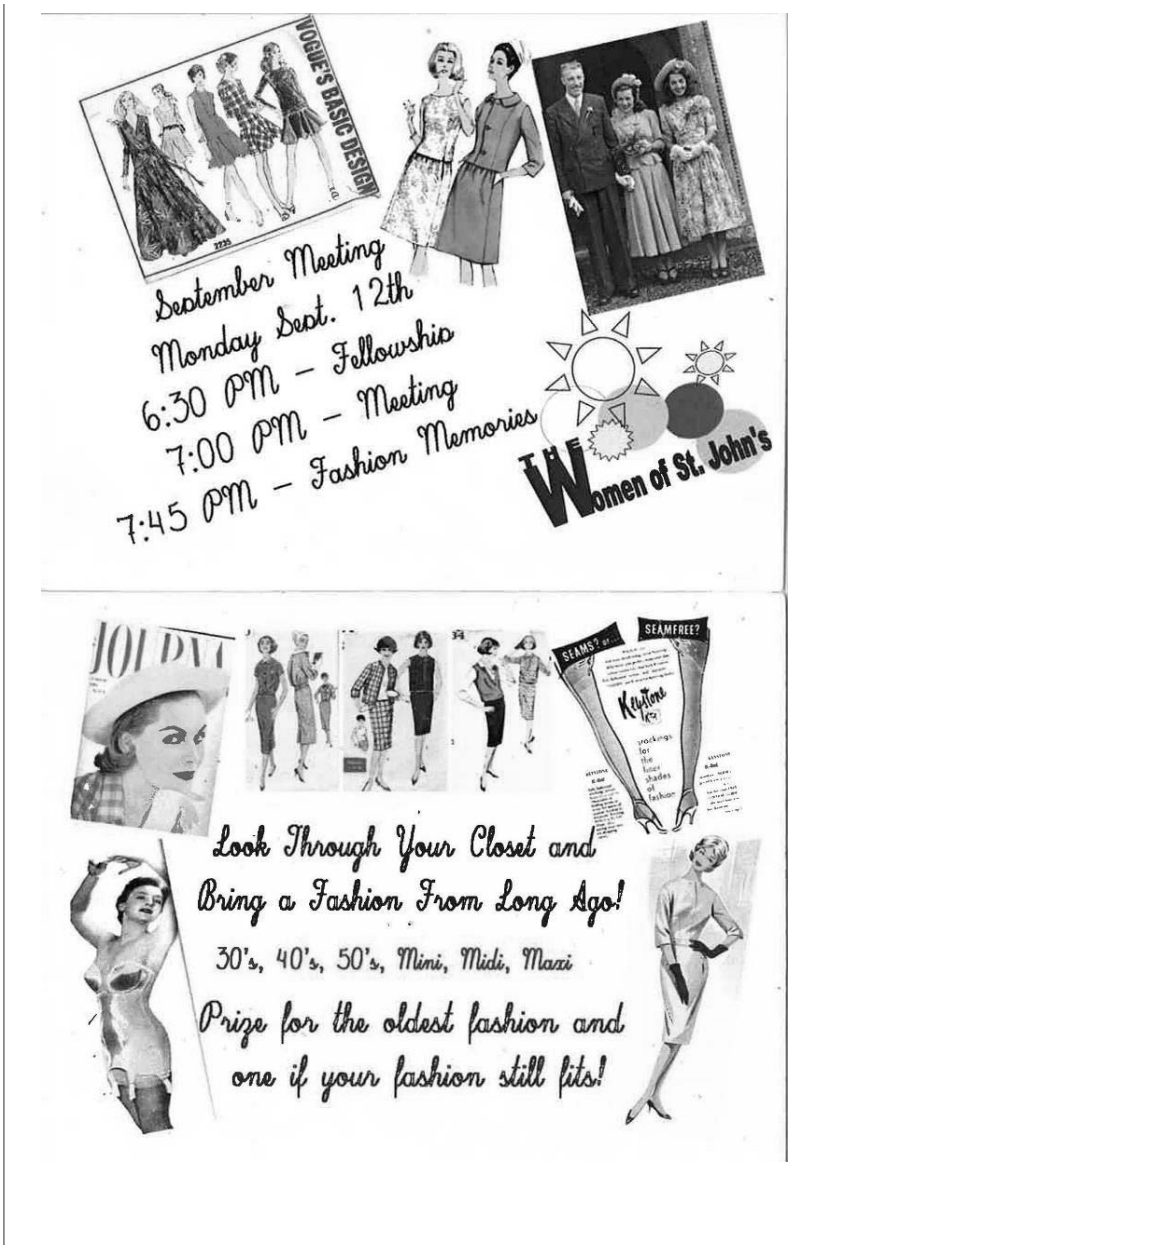 VOGUE'S BASIC DESIGN
2235
September Meeting
Monday Sept. 12th
6:30 PM – Fellowship
7:00 PM – Meeting
7:45 PM – Fashion Memories
THE
Women of St. John's
JOURNA
SEAMS? or...
SEAMFREE?
Keystone
stockings
for
the
finer
shades
of
fashion
Look Through Your Closet and
Bring a Fashion From Long Ago!
30's, 40's, 50's, Mini, Midi, Maxi
Prize for the oldest fashion and
one if your fashion still fits!